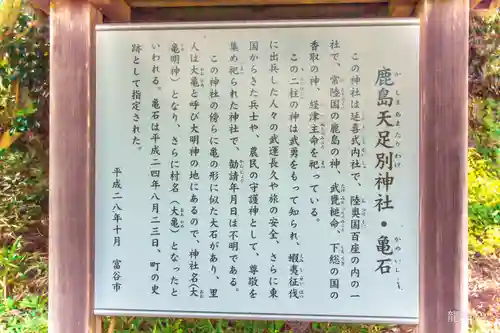 鹿島天足別神社・亀石
かしまあまたりわけ
かめいし
この神社は延喜式内社で、陸奥国百座の内の一
社で、常陸国の鹿島の神、武甕槌命、下総の国の
香取の神、経津主命を祀っている。
この二柱の神は武勇をもって知られ、蝦夷征伐
に出兵した人々の武運長久や旅の安全、さらに東
国からきた兵士や、農民の守護神として、尊敬を
集め祀られた神社で、勧請年月日は不明である。
この神社の傍らに亀の形に似た大石があり、里
人は大亀と呼び大明神の地にあるので、神社名(大
亀明神)となり、さらに村名(大亀)となったと
いわれる。亀石は平成二四年八月二三日、町の史
跡として指定された。
平成二八年十月 富谷市